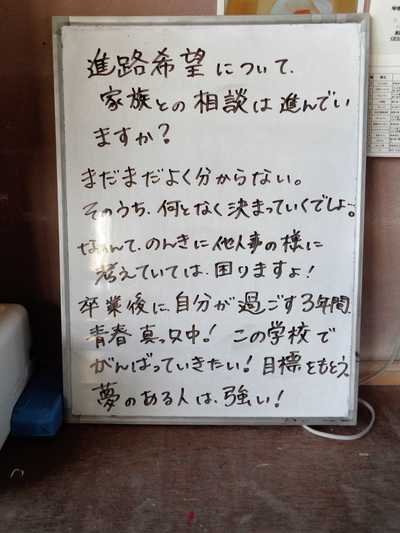 進路希望について、
家族との相談は進んでい
ますか?
まだまだよく分からない。
そのうち、何となく決まっていくでしょ。
なんて、のんきに他人事の様に
考えていては、困りますよ!
卒業後に自分が過ごす3年間
青春真っ只中! この学校で
がんばっていきたい! 目標をもとう
夢のある人は、強い!